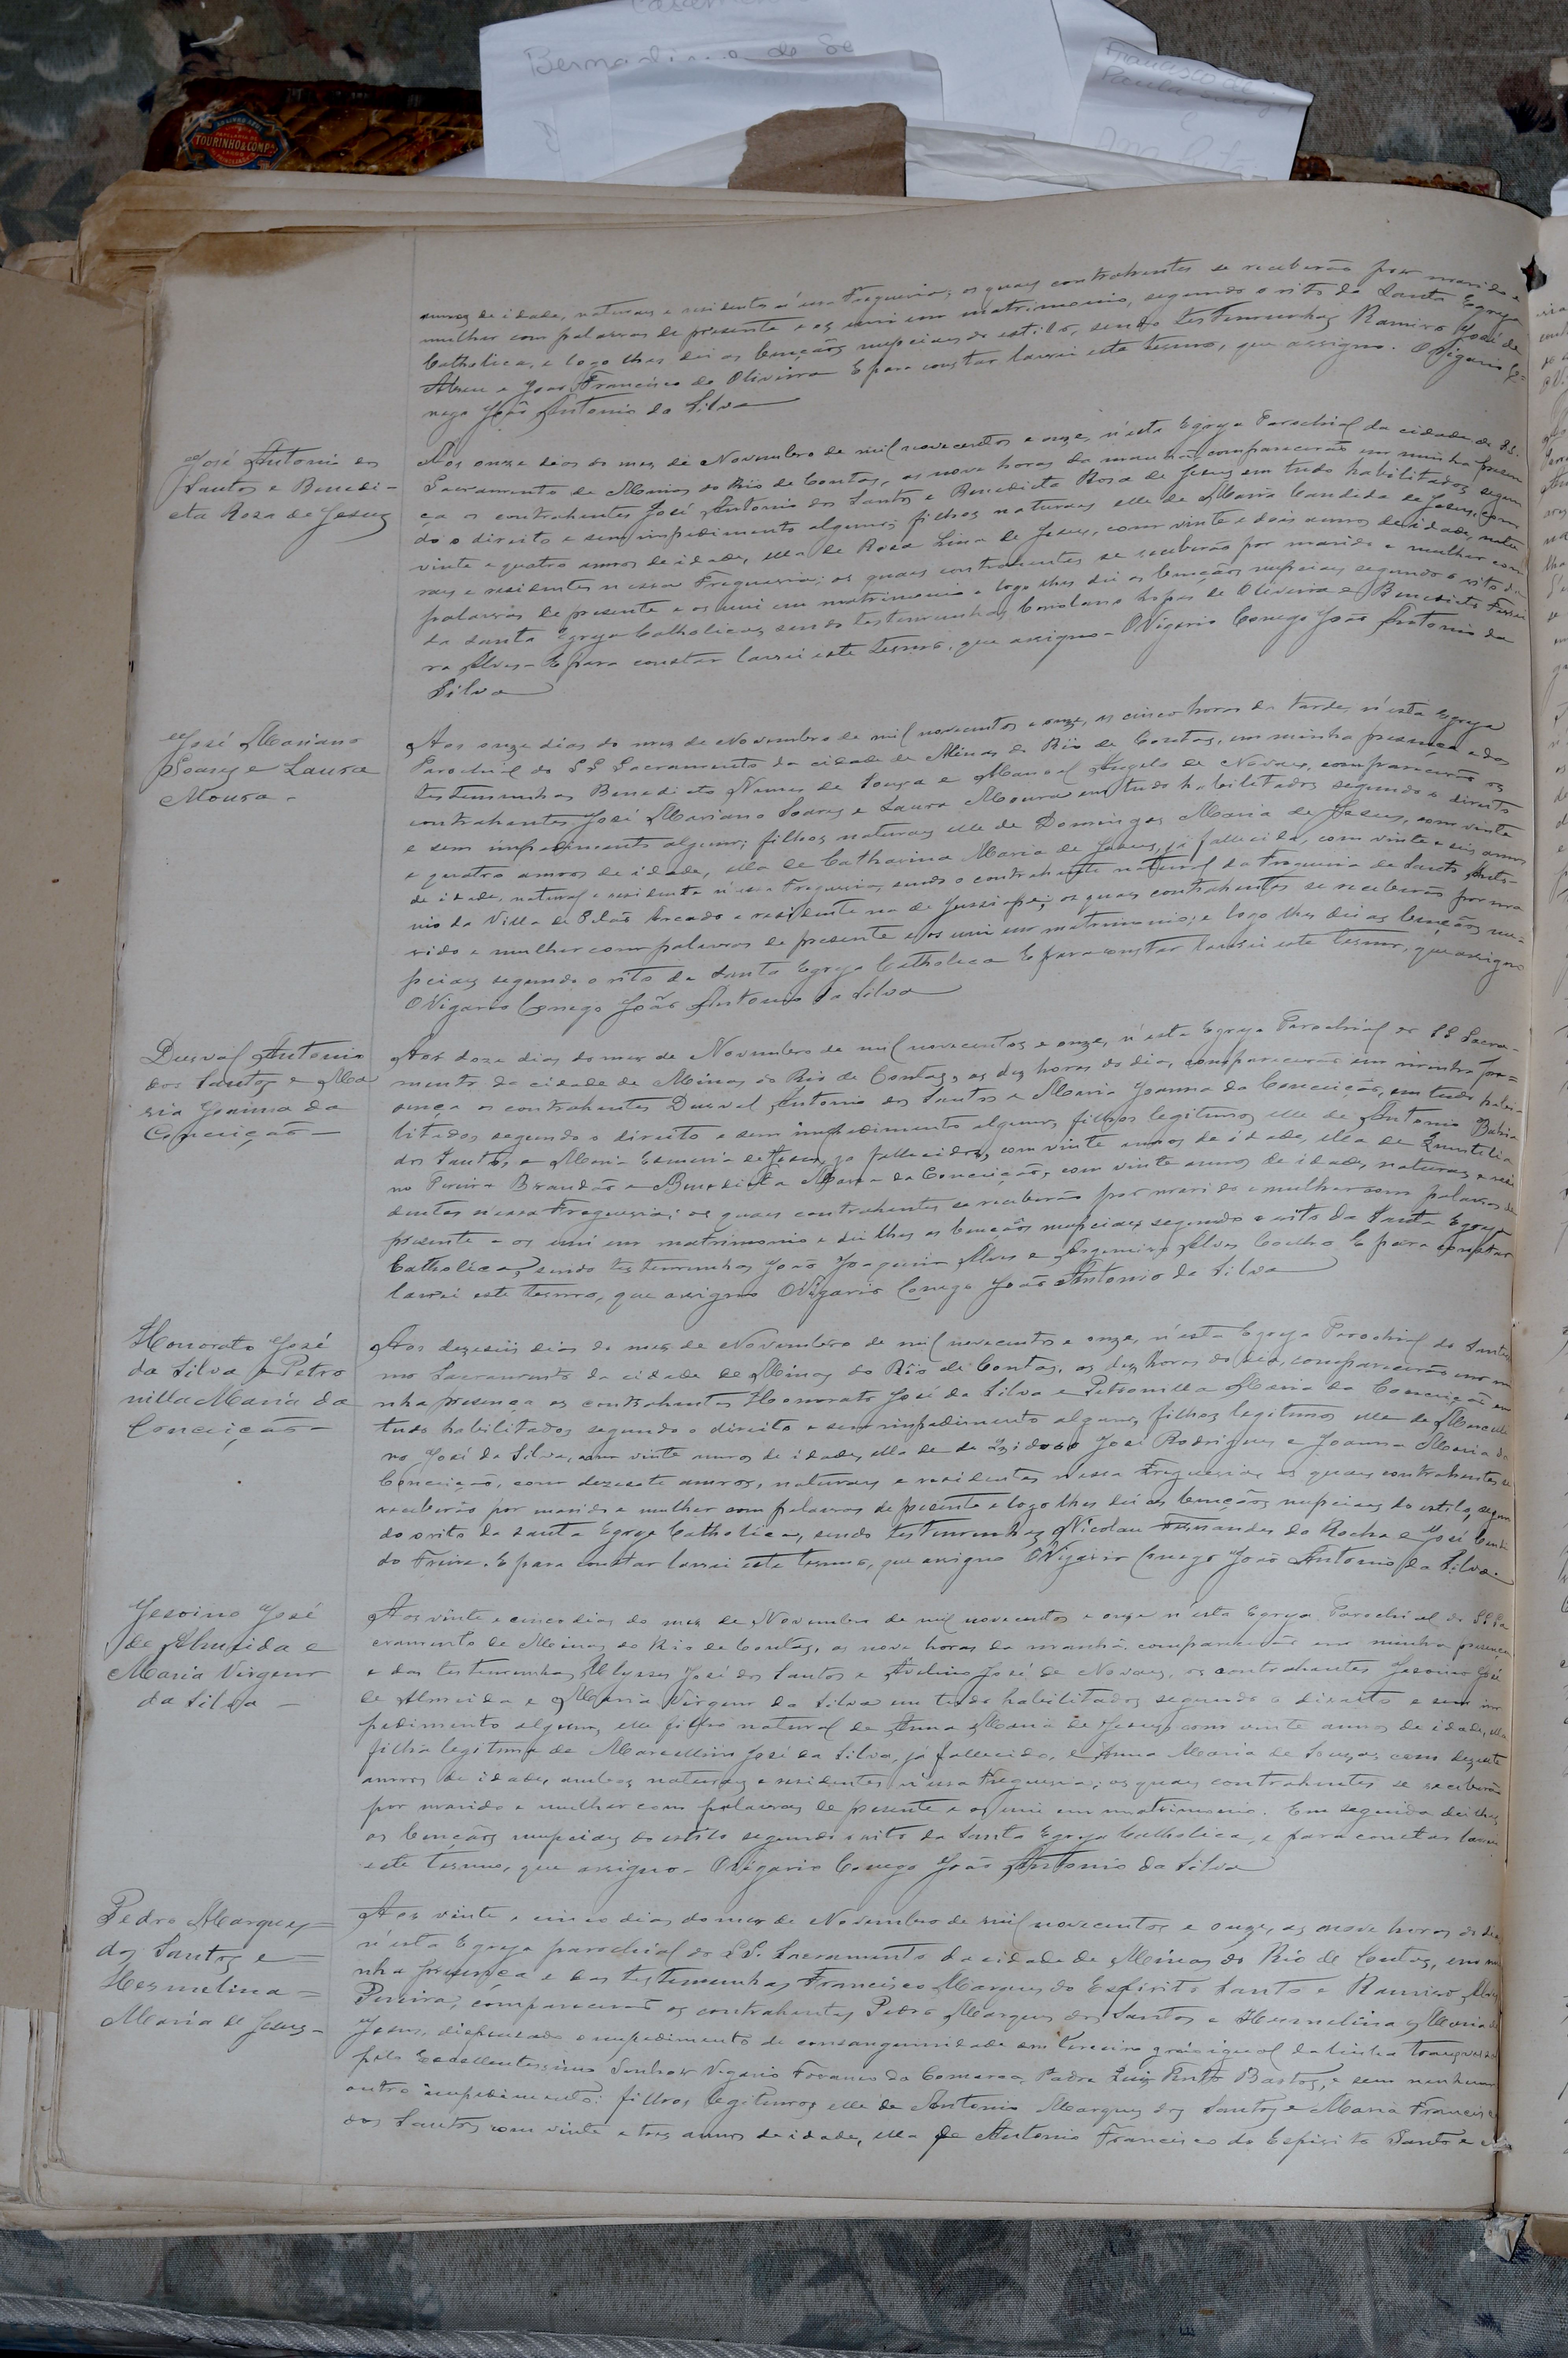 Bernardino de So
Francisco de
Paula
e
Ana Rita
TOURINHO & COMPª
annos de idade, naturaes e residentes n'essa Freguesia; os quaes contrahentes se receberão por marido e
mulher com palavras de presente e os uni em matrimonio, segundo o rito da Santa Egreja
Catholica, e logo lhes dei as bençãos nupciaes do estilo, sendo testemunhas Ramiro José de
Abreu e João Francisco de Oliveira E para constar lavrei este termo, que assigno. O Vigario Co=
nego João Antonio da Silva
José Antonio dos
Santos e Benedi-
cta Rosa de Jesus
Aos onze dias do mez de Novembro de mil novecentos e onze, n'esta Egreja Parochial da cidade do SS.
Sacramento de Minas do Rio de Contas, as nove horas da manhã, comparecerão em minha presen
ça os contrahentes José Antonio dos Santos e Benedicta Rosa de Jesus em tudo habilitados segun
do o direito e sem impedimento algum; filhos naturaes elle de Maria Candida de Jesus, com
vinte e quatro annos de idade, ella de Rosa Lina de Jesus, com vinte e dois annos de idade, natu
raes e residentes n'essa Freguesia; os quaes contrahentes se receberão por marido e mulher com
palavras de presente e os uni em matrimonio e logo lhes dei as bençãos nupciaes segundo o rito da
da Santa Egreja Catholica, sendo testemunhas Coriolano Lopes de Oliveira e Benedicto Ferrei
ra Alves - E para constar lavrei este termo, que assigno - O Vigario Conego João Antonio da
Silva
José Mariano
Soares e Laura
Moura -
Aos onze dias do mez de Novembro de mil novecentos e onze, as cinco horas da tarde, n'esta Egreja
Parochial do SS Sacramento da cidade de Minas do Rio de Contas, em minha presença e das
testemunhas Benedicto Nunes de Souza e Manoel Angelo de Novaes, comparecerão os
contrahentes José Mariano Soares e Laura Moura em tudo habilitados segundo o direito
e sem impedimento algum; filhos naturaes elle de Domingas Maria de Jesus, com vinte
e quatro annos de idade, ella de Catharina Maria de Jesus, já fallecida, com vinte e seis annos
de idade, natural e residente n'essa Freguesia, sendo o contrahente natural da Freguesia de Santo Anto-
nio da Villa de Pilão Arcado e residente na de Jussiape; os quaes contrahentes se receberão por ma
rido e mulher com palavras de presente e os uni em matrimonio; e logo lhes dei as bençãos nu-
pciaes segundo o rito da Santa Egreja Catholica E para constar lavrei este termo, que assigno
O Vigario Conego João Antonio da Silva
Durval Antonio
dos Santos e Ma
ria Joanna da
Conceição -
Aos doze dias do mez de Novembro de mil novecentos e onze, n'esta Egreja Parochial do SS Sacra-
mento da cidade de Minas do Rio de Contas, as dez horas do dia, comparecerão em minha pre=
sença os contrahentes Durval Antonio dos Santos e Maria Joanna da Conceição, em tudo habi-
litados segundo o direito e sem impedimento algum, filhos legitimos elle de Antonio Bahia
dos Santos, e Maria Esmeria de Jesus, já fallecidos, com vinte annos de idade, ella de Quintilia
no Pereira Brandão e Benedicta Maria da Conceição, com vinte annos de idade, naturaes e resi
dentes n'essa Freguesia; os quaes contrahentes se receberão por marido e mulher com palavras de
presente e os uni em matrimonio e dei lhes as bençãos nupciaes segundo o rito da Santa Egreja
Catholica, sendo testemunhas João Joaquim Alves e Argemiro Alves Coelho E para constar
lavrei este termo, que assigno O Vigario Conego João Antonio da Silva
Honorato José
da Silva e Petro
nilla Maria da
Conceição -
Aos dezeseis dias do mez de Novembro de mil novecentos e onze, n'esta Egreja Parochial do Santis
mo Sacramento da cidade de Minas do Rio de Contas, as dez horas do dia, comparecerão em mi
nha presença os contrahentes Honorato José da Silva e Petronilla Maria da Conceição em
tudo habilitados segundo o direito e sem impedimento algum, filhos legitimos elle de Marcelli
no José da Silva, com vinte annos de idade, ella de de Izidoro José Rodrigues e Joanna Maria da
Conceição, com dezesete annos, naturaes e residentes nessa Freguesia; os quaes contrahentes se
receberão por marido e mulher com palavras de presente e logo lhes dei as bençãos nupciaes do estilo, segun
do o rito da Santa Egreja Catholica, sendo testemunhas Nicolau Fernandes da Rocha e José Candi
do Freire. E para constar lavrei este termo, que assigno O Vigario Conego João Antonio da Silva.
Jesoino José
de Almeida e
Maria Virgem
da Silva -
Aos vinte e cinco dias do mez de Novembro de mil novecentos e onze n'esta Egreja Parochial do SS. Sa
cramento de Minas do Rio de Contas, as nove horas da manhã, comparecerão em minha presença
e das testemunhas Ulysses José dos Santos e Avelino José de Novaes, os contrahentes Jesoino José
de Almeida e Maria Virgem da Silva em tudo habilitados segundo o direito e sem im
pedimento algum, elle filho natural de Anna Maria de Jesus, com vinte annos de idade, ella
filha legitima de Marcellino José da Silva, já fallecido, e Anna Maria de Souza, com dezesete
annos de idade, ambos naturaes e residentes n'essa Freguesia; os quaes contrahentes se receberão
por marido e mulher com palavras de presente e os uni em matrimonio. Em seguida dei lhes
as bençãos nupciaes do estilo segundo o rito da Santa Egreja Catholica, e para constar lavrei
este termo, que assigno - O Vigario Conego João Antonio da Silva
Pedro Marques =
dos Santos e =
Hermelina =
Maria de Jesus -
Aos vinte e cinco dias do mez de Novembro de mil novecentos e onze, as nove horas do dia
n'esta Egreja parochial do SS. Sacramento da cidade de Minas do Rio de Contas, em mi
nha presença e das testemunhas Francisco Marques do Espirito Santo e Ramiro Alves
Pereira, comparecerão os contrahentes Pedro Marques dos Santos e Hermelina Maria de
Jesus, dispensado o impedimento de consanguinidade em terceiro gráo igual da linha transversal
pelo Excellentissimo Senhor Vigario Foraneo da Comarca, Padre Luiz Pinto Bastos, e sem nenhum
outro impedimento: filhos legitimos elle de Antonio Marques dos Santos e Maria Francisca
dos Santos, com vinte e tres annos de idade, ella de Antonio Francisco do Espirito Santo e